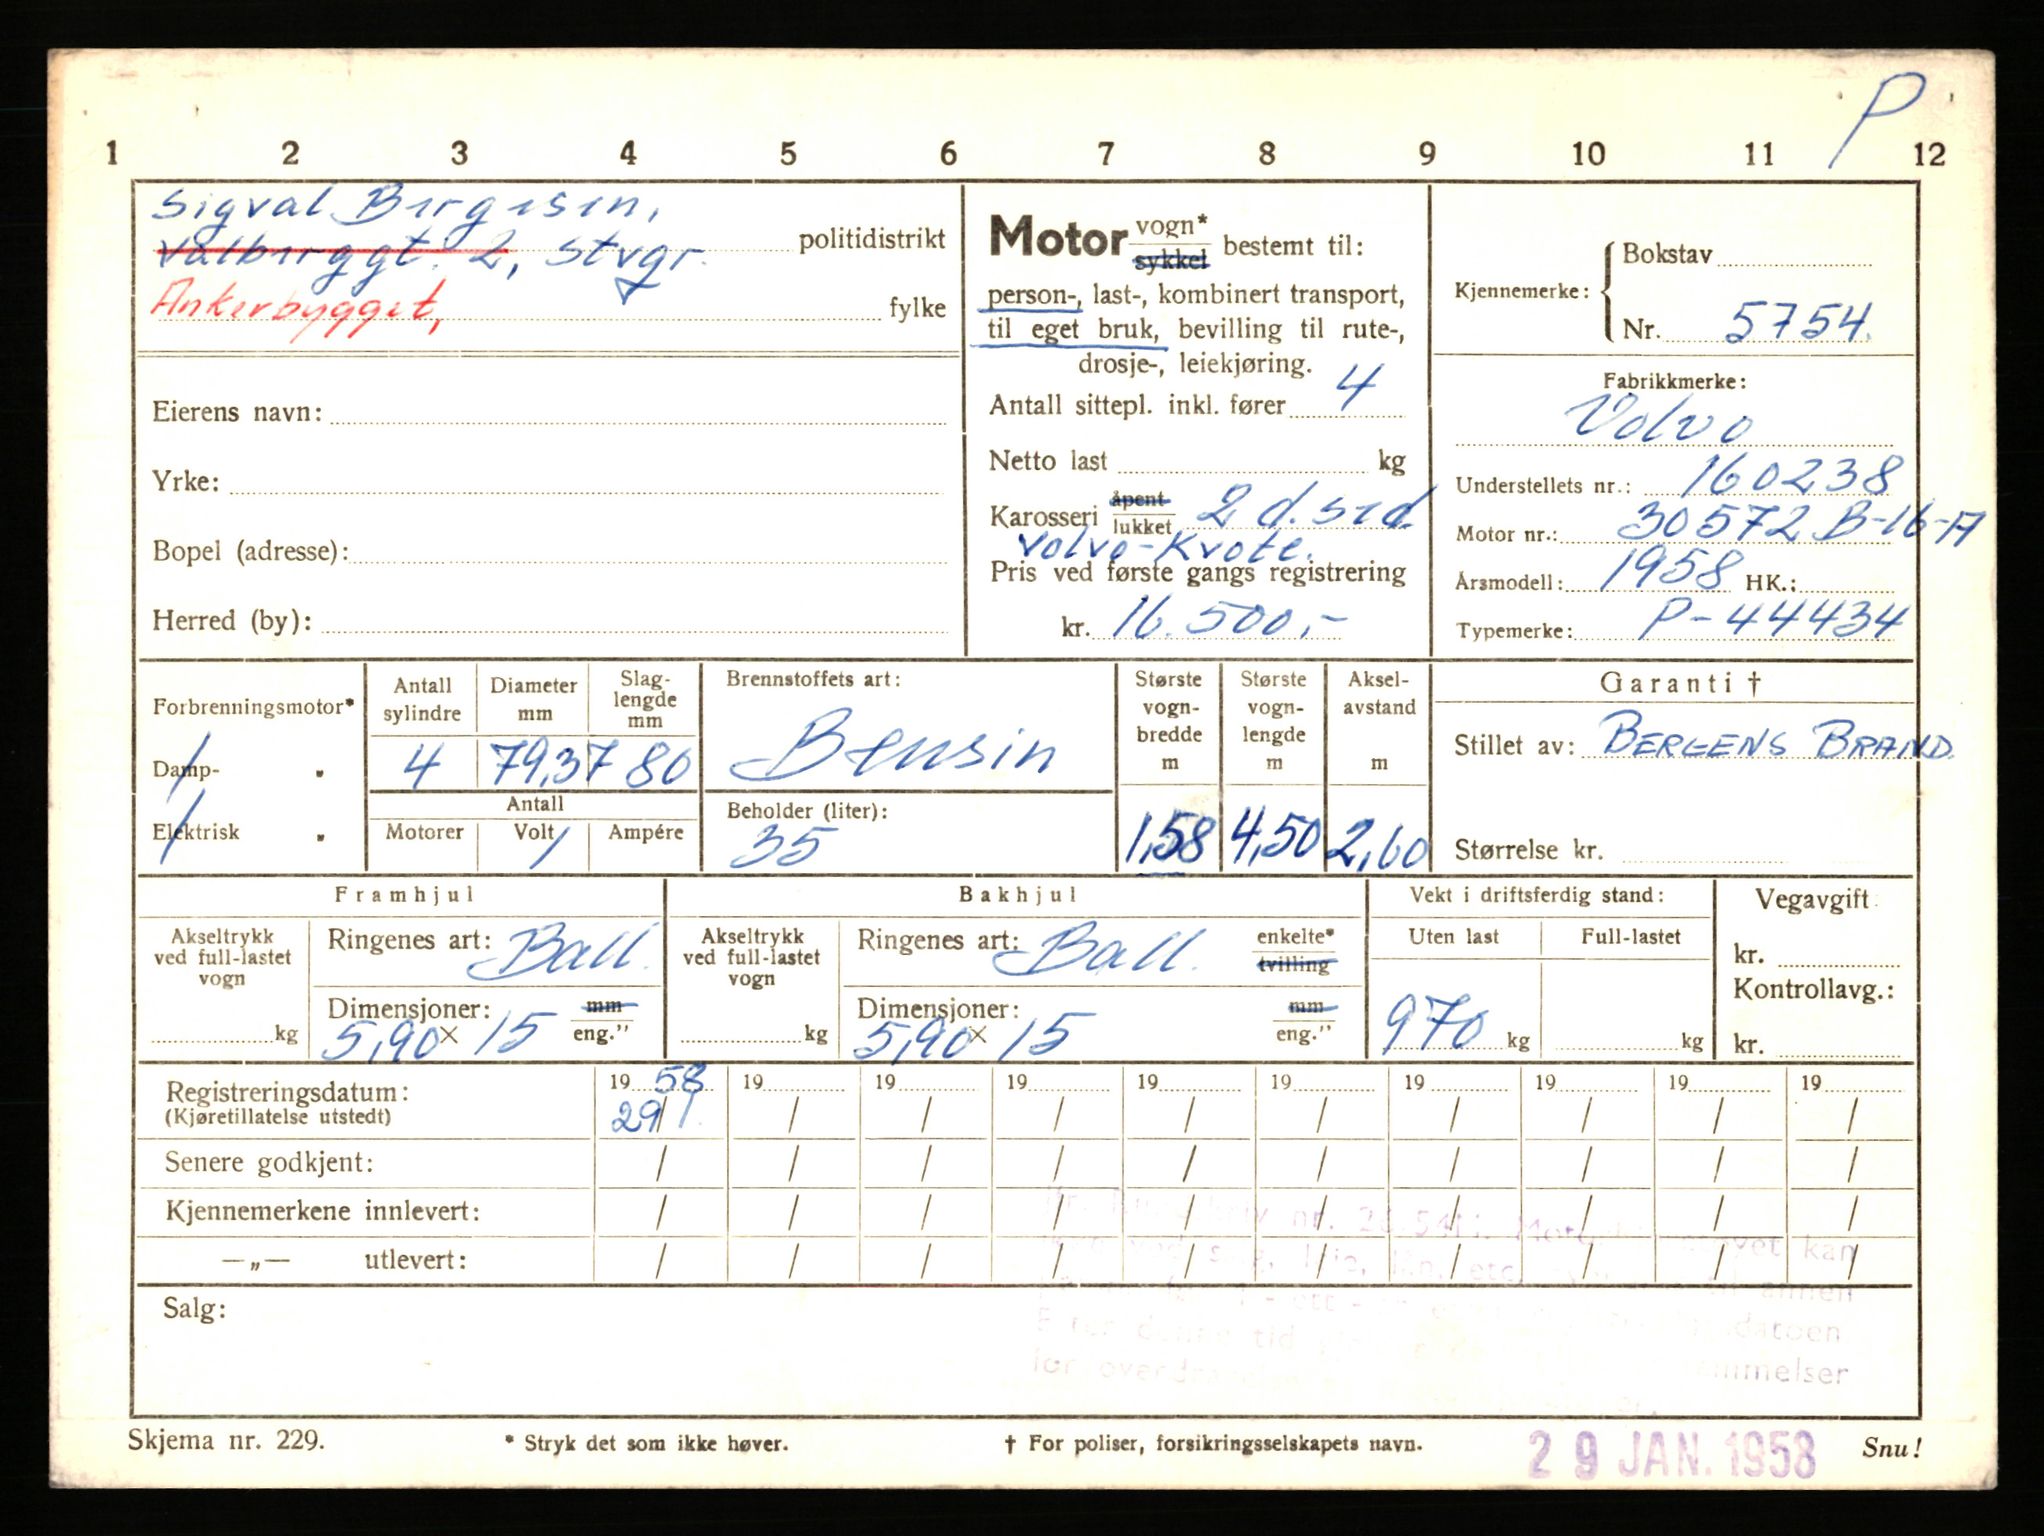 P
1 2 3 4 5 6 7 8 9 10 11 12
Sigval Bergesen,
Valberggt. 2, Stvgr. politidistrikt
Ankerbygget, fylke
Eierens navn:
Yrke:
Bopel (adresse):
Herred (by):
Motor vogn* sykkel bestemt til:
person-, last-, kombinert transport,
til eget bruk, bevilling til rute-,
drosje-, leiekjøring.
Antall sittepl. inkl. fører 4
Netto last kg
Karosseri åpent lukket 2 d. sed
Volvo-Kvote.
Pris ved første gangs registrering
kr. 16.500,-
Kjennemerke: Bokstav
Nr. 5754.
Fabrikkmerke:
Volvo
Understellets nr.: 160238
Motor nr.: 30572 B-16-A
Årsmodell: 1958 HK.:
Typemerke: P-44434
Forbrenningsmotor*
Damp- "
Elektrisk "
Antall sylindre
Diameter mm
Slag-lengde mm
4 79,37 80
Antall
Motorer Volt Ampére
Brennstoffets art:
Bensin
Beholder (liter):
35
Største vogn-bredde m
1,58
Største vogn-lengde m
4,50
Aksel-avstand m
2,60
Garanti †
Stillet av: BERGENS BRAND.
Størrelse kr.
Framhjul
Akseltrykk
ved full-lastet
vogn
kg
Ringenes art: Ball.
Dimensjoner: mm
5,90 x 15 eng."
Bakhjul
Akseltrykk
ved full-lastet
vogn
kg
Ringenes art: Ball. enkelte*
tvilling
Dimensjoner: mm
5,90 x 15 eng."
Vekt i driftsferdig stand:
Uten last Full-lastet
970 kg kg
Vegavgift:
kr.
Kontrollavg.:
kr.
Registreringsdatum: 19 58 19 19 19 19 19 19 19 19 19
(Kjøretillatelse utstedt) 29/1 / / / / / / / / /
Senere godkjent: / / / / / / / / / /
Kjennemerkene innlevert: / / / / / / / / / /
—„— utlevert: / / / / / / / / / /
Salg:
nr. kan
annen
denne tid datoen
for
Skjema nr. 229. * Stryk det som ikke høver. † For poliser, forsikringsselskapets navn. 29 JAN. 1958 Snu!